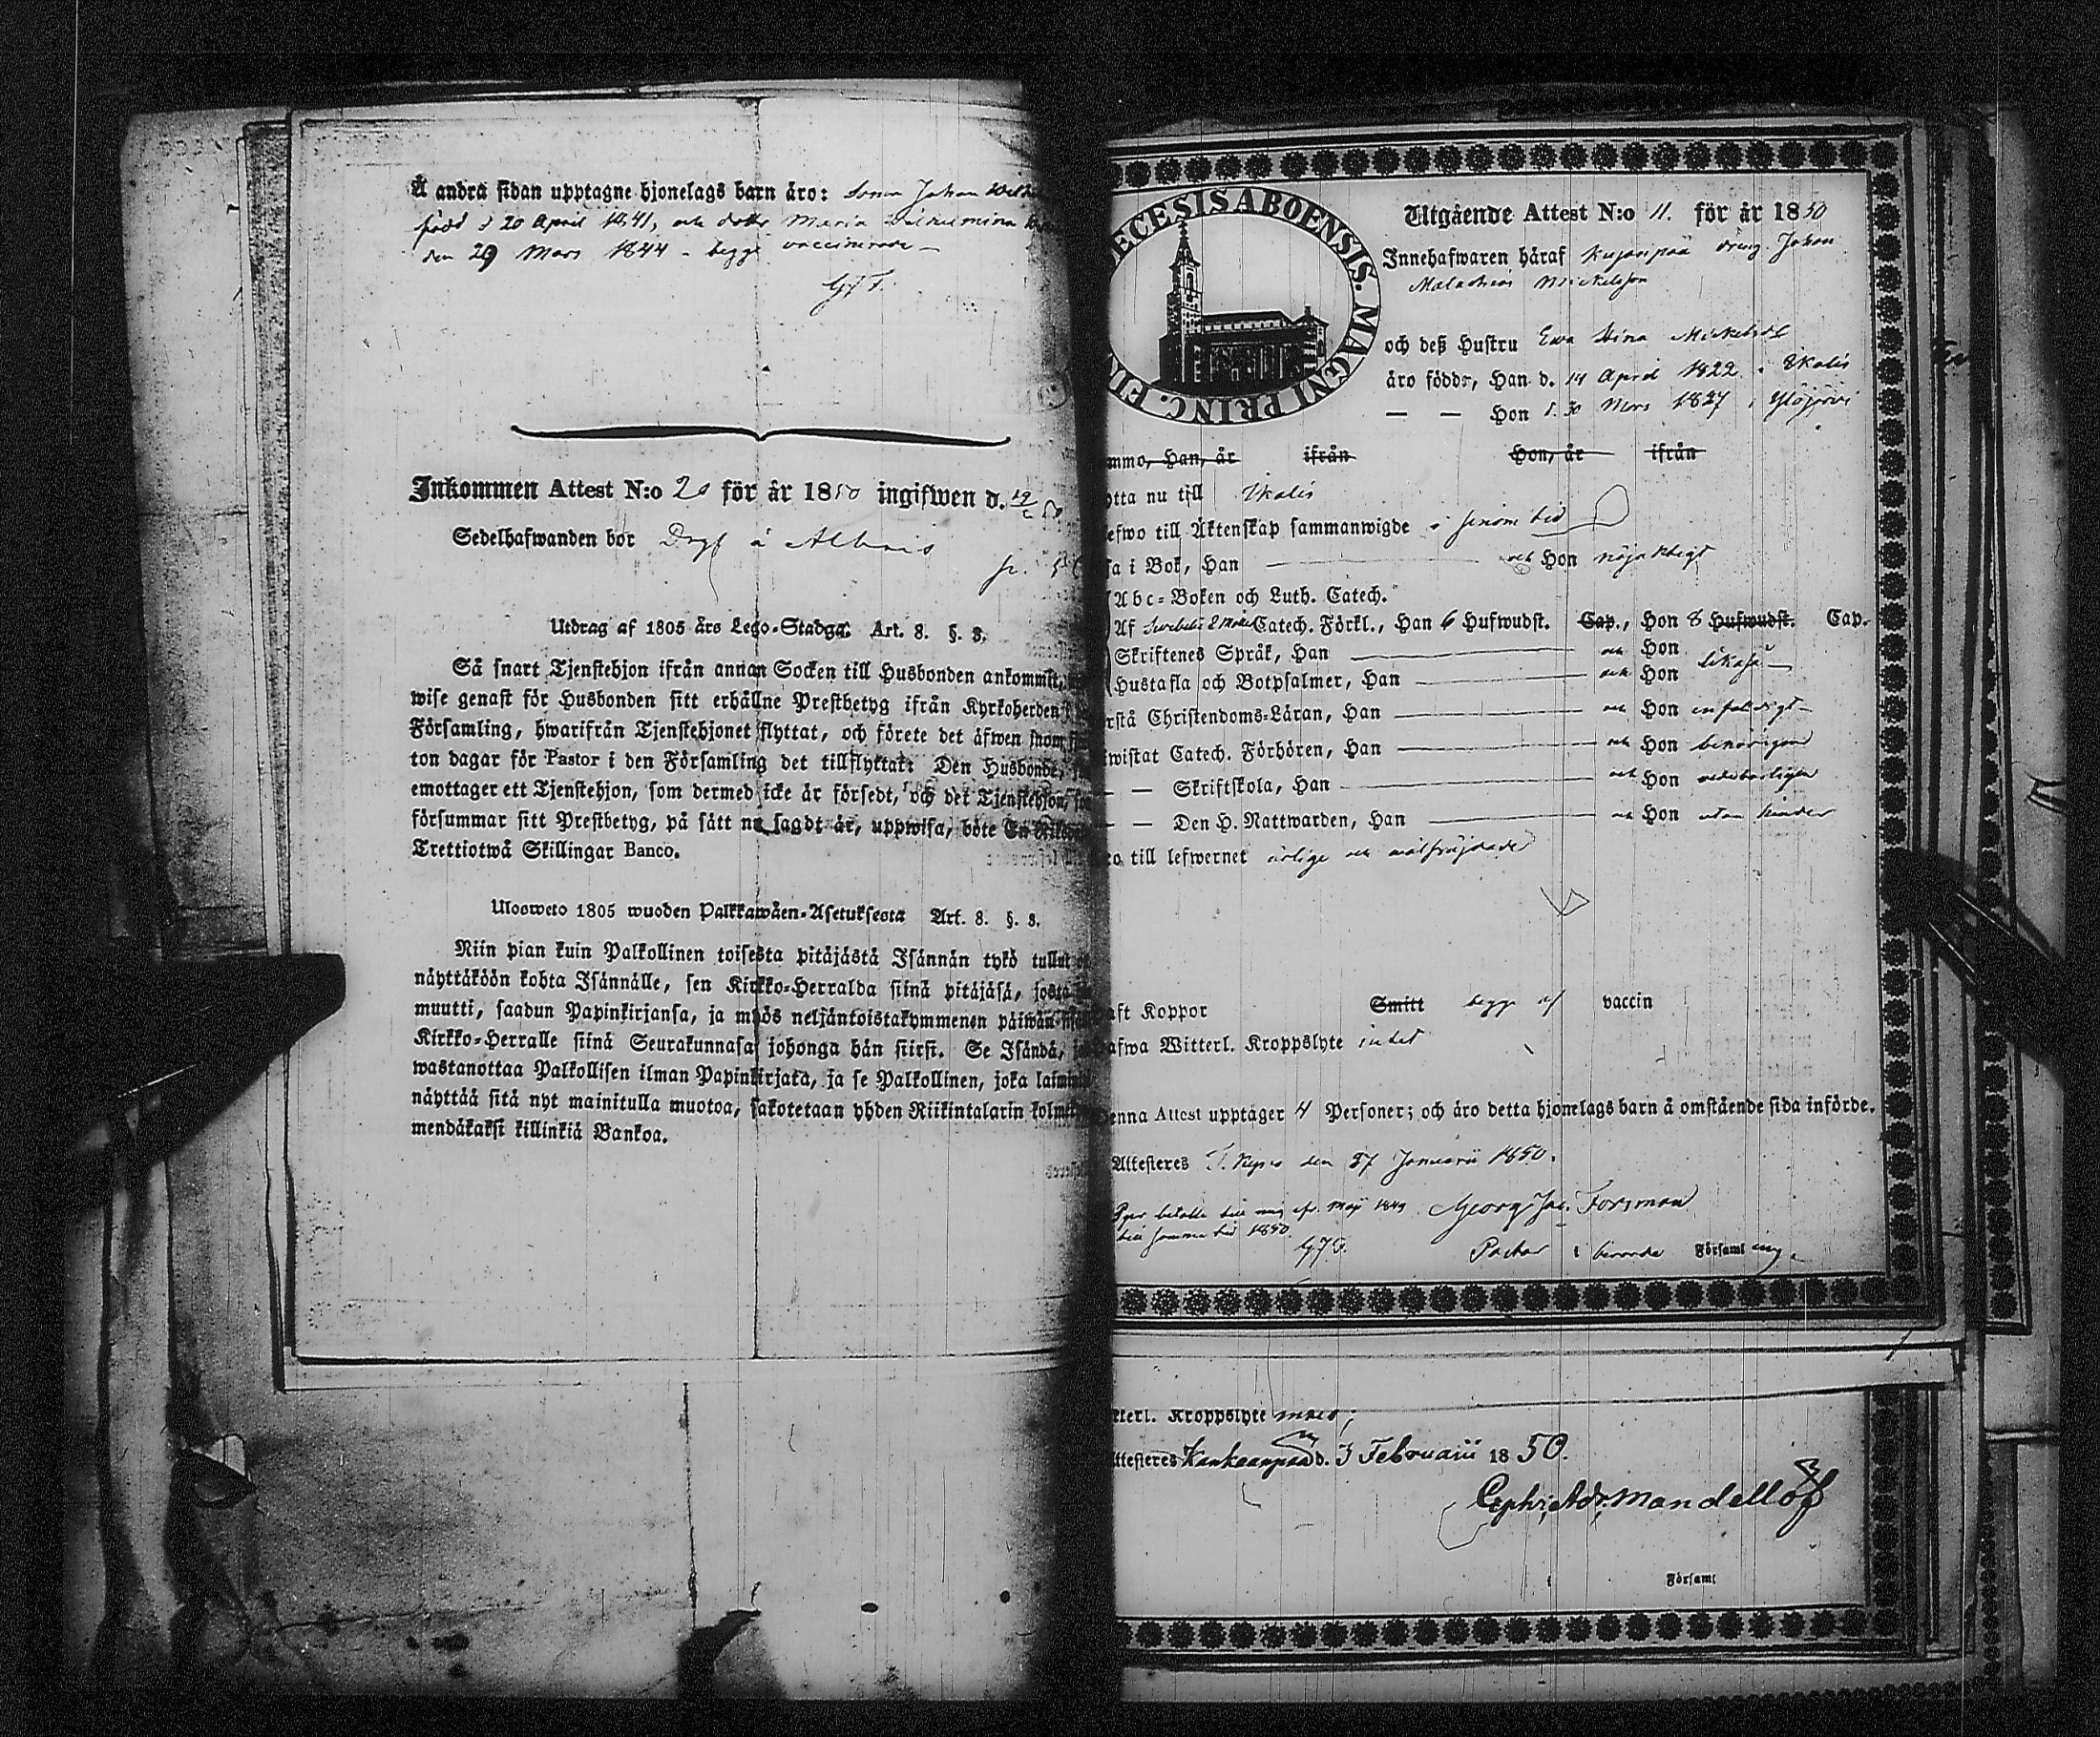 Å andra sidan upptagne hjonelags barn äro: Sonen Johan
född d 20 April 1841, och dotter Maria Wilhelmina
den 29 Mars 1844 - begge vaccinerade -
GJF.
Inkommen Attest N:o 20 för år 1850 ingifwen d. 
Sedelhafwanden bor
Utdrag af 1805 års Lego-Stadga. Art. 8. §. 3.
Så snart Tjenstehjon ifrån annan Socken till Husbonden ankommit,
wise genast för Husbonden sitt erhållne Prestbetyg ifrån Kyrkoherden i
Församling, hwarifrån Tjenstehjonet flyttat, och förete det äfwen inom
ton dagar för Pastor i den Församling det tillflyttat: Den Husbonde,
emottager ett Tjenstehjon, som dermed icke är försedt, och det Tjenstehjon,
försummar sitt Prestbetyg, på sätt nu sagdt är, uppwisa, böte En
Trettiotwå Skillingar Banco.
Ulosweto 1805 wuoden Palkkawäen-Asetuksesta Art. 8. §. 3.
Niin pian kuin Palkollinen toisesta pitäjästä Isännän tykö tullut
näyttäköön kohta Isännälle, sen Kirkko-Herralda siinä pitäjäsä, josta
muutti, saadun Papinkirjansa, ja myös neljäntoistakymmenen päiwän
Kirkko-Herralle siinä Seurakunnasa johonga hän siirsi. Se Isändä,
wastanottaa Palkollisen ilman Papinkirjata, ja se Palkollinen, joka
näyttää sitä nyt mainitulla muotoa, sakotetaan yhden Riikintalarin
mendäkaksi killinkiä Bankoa.
ECESIS ABOENSIS. MAGNI PRINC. FIN
Utgående Attest N:o 11. för år 1850
Innehafwaren häraf dreng Johan
Malachias Mickelsson
och deß Hustru Ewa Stina Mickelsdr
äro födde, Han d. 14 April 1822 i Ikalis
— — Hon d. 30 Mars 1827 i Ylöjärvi
ommo, Han, år ifrån Hon, år ifrån
ytta nu till Ikalis
efwo till Äktenskap sammanwigde i sinom tid
sa i Bok, Han och Hon nöjaktigt
Abc-Boken och Luth. Catech.
Af Svebelii Catech. Förkl., Han 6 Hufwudst. Cap., Hon 8 Hufwudst. Cap.
Skriftenes Språk, Han och Hon
Hustafla och Botpsalmer, Han och Hon likaså
rstå Christendoms-Läran, Han och Hon enfaldigt
iwistat Catech. Förhören, Han och Hon behörigen
— — Skriftskola, Han och Hon vederbörligen
— — Den H. Nattwarden, Han och Hon utan hinder
ro till lefwernet ärlige och wälfrejdade
aft Koppor Smitt begge af vaccin
afwa Witterl. Kroppslyte intet
Denna Attest upptager 4 Personer; och äro detta hjonelags barn å omstående sida införde.
Attesteres den 27 Januarii 1850.
betalte till mig Maj 1849 Georg Jac. Forsman
till samma tid 1850.
GJF. Pastor i berörde Församling.
tterl. Kroppslyte
ttesteres Kankaanpää d. 3 Februarii 1850.
Mandellöf
Församl